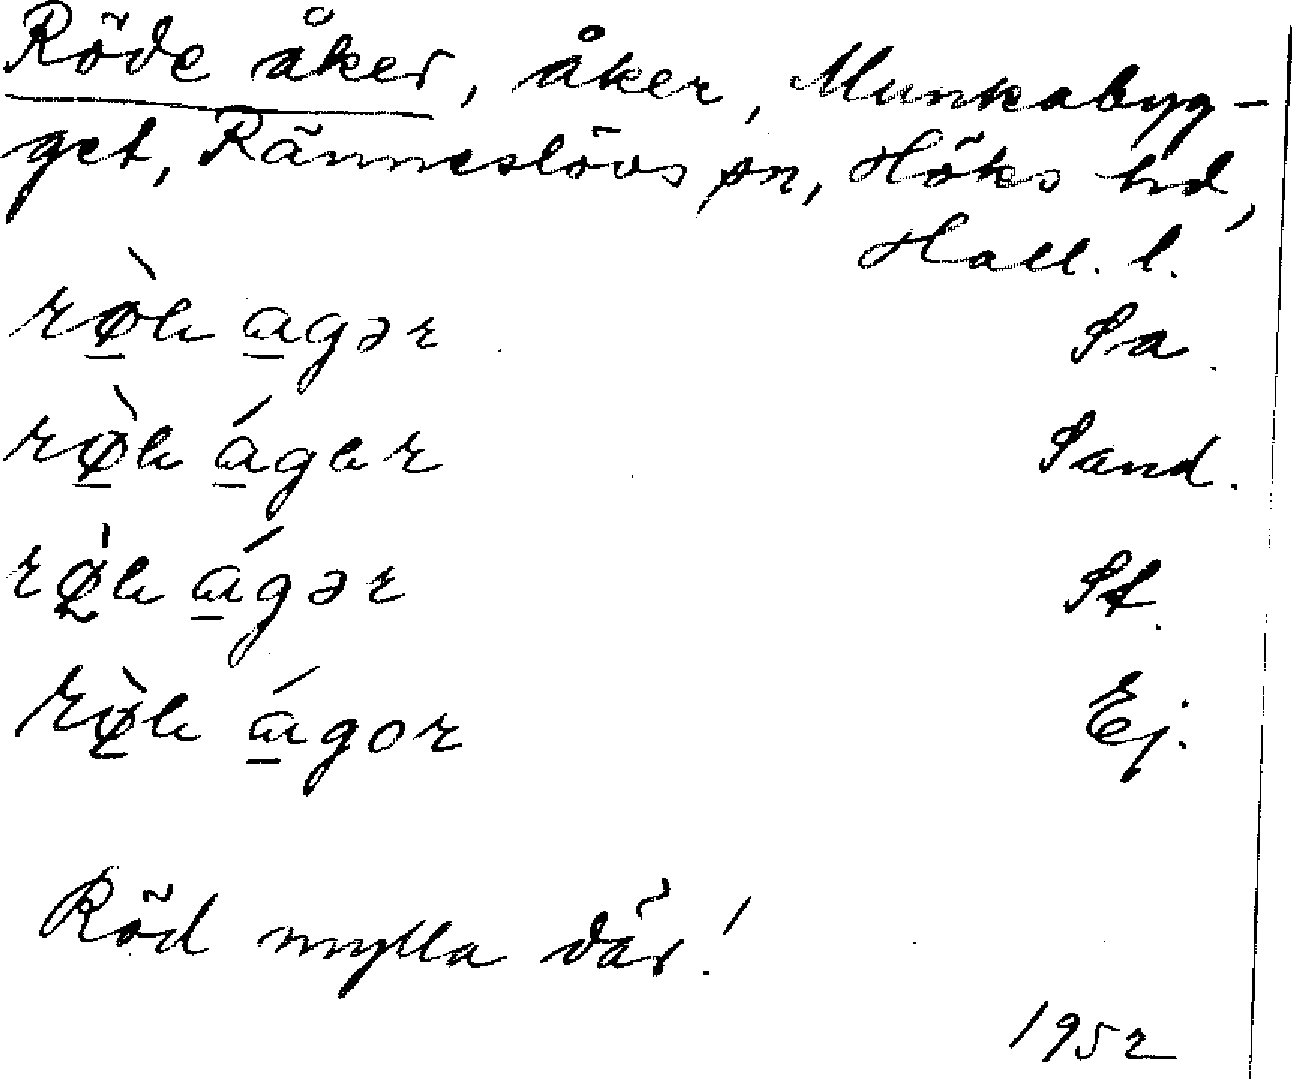 Röde åker, åker, Munkabyg-
get, Ränneslövs sn, Höks hd,
Hall. l.
rø̲̀e a̲gər Sa.
rø̲̀e á̲ger Sand.
rø̨̀e á̲gər St.
rø̨̀e á̲gor Ej.
Röd mylla där!
1952